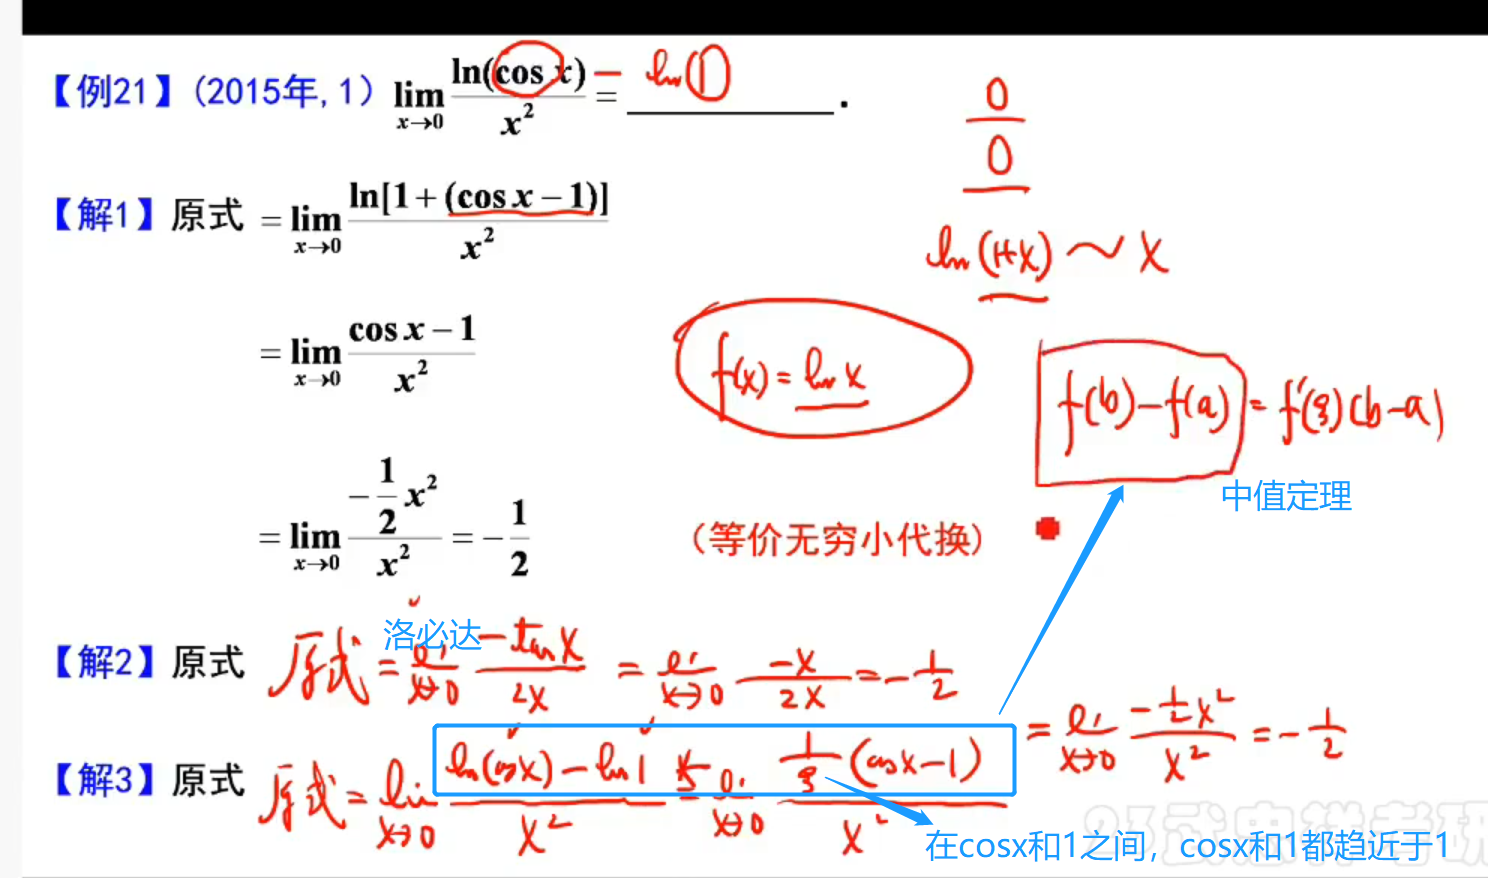 【例21】(2015年,1) lim x→0 ln(cos x)/x² = ________. − ln(1)
0/0
【解1】原式 = lim x→0 ln[1+(cos x−1)]/x²
ln(1+x) ~ x
= lim x→0 (cos x−1)/x²
f(x)=ln x
f(b)−f(a) = f'(ξ)(b−a)
中值定理
= lim x→0 (−1/2 x²)/x² = −1/2
(等价无穷小代换)
洛必达
【解2】原式 原式 = li x→0 −tan x/2x = li x→0 −x/2x = −1/2
【解3】原式 原式 = lim x→0 (ln(cos x)−ln 1)/x² = li x→0 1/ξ (cos x−1)/x² = li x→0 (−1/2 x²)/x² = −1/2
在cosx和1之间，cosx和1都趋近于1
23武忠祥考研